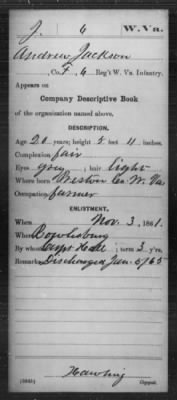 J. 6 W. Va.
Andrew Jackson
, Co. F, 6 Reg't W. Va. Infantry.
Appears on
Company Descriptive Book
of the organization named above.
DESCRIPTION.
Age 20 years; height 5 feet 11 inches.
Complexion fair
Eyes grey; hair light
Where born Preston Co. W. Va.
Occupation farmer
ENLISTMENT.
When Nov. 3, 1861.
Where Rowlesburg
By whom Capt Hall; term 3 y'rs.
Remarks: Discharged Jan. 5/65
Copyist.